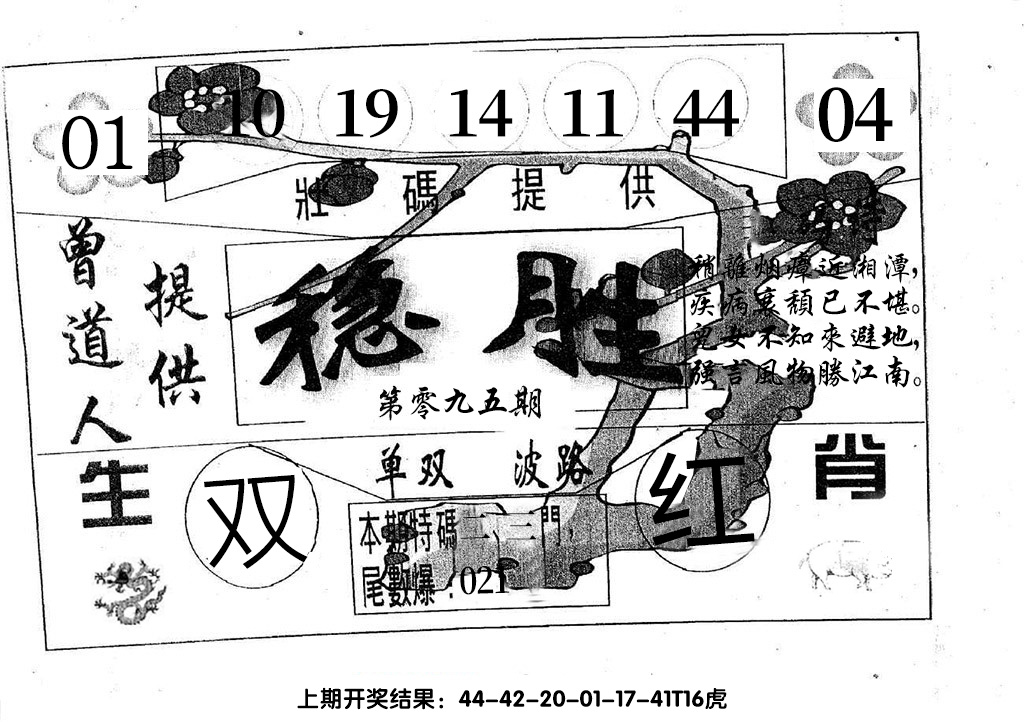 01 10 19 14 11 44 04
壯碼提供
曾道人
提供
稳胜
第零九五期
稍離烟瘴近湘潭，
疾病衰頹已不堪。
兒女不知來避地，
强言風物勝江南。
单双 波路
生 双 红 肖
本期特碼二、三門，
尾數爆：021
上期开奖结果：44-42-20-01-17-41T16虎